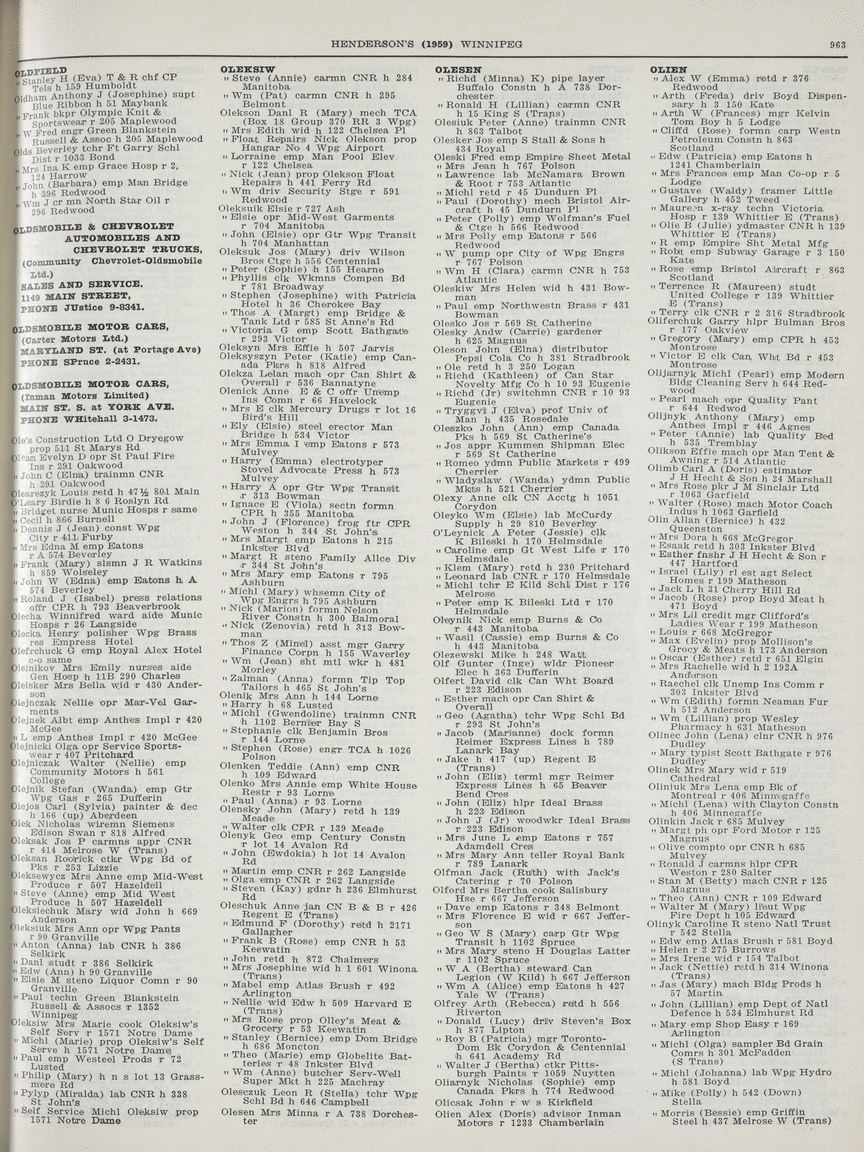 HENDERSON'S (1959) WINNIPEG
963
OLDFIELD
" Stanley H (Eva) T & R chf CP
Tels h 159 Humboldt
Oldham Anthony J (Josephine) supt
Blue Ribbon h 51 Maybank
" Frank bkp Olympic Knit &
Sportswear r 205 Maplewood
" W Fred engr Green Blankstein
Russell & Assoc h 205 Maplewood
Olds Beverley tchr Ft Garry Schl
Dist r 1033 Bond
" Mrs Ina K emp Grace Hosp r 2,
124 Harrow
" John (Barbara) emp Man Bridge
h 396 Redwood
" Wm J cr mn North Star Oil r
396 Redwood
OLDSMOBILE & CHEVROLET
AUTOMOBILES AND
CHEVROLET TRUCKS,
(Community Chevrolet-Oldsmobile
Ltd.)
SALES AND SERVICE.
1149 MAIN STREET,
PHONE JUstice 9-8341.
OLDSMOBILE MOTOR CARS,
(Carter Motors Ltd.)
MARYLAND ST. (at Portage Ave)
PHONE SPruce 2-2431.
OLDSMOBILE MOTOR CARS,
(Inman Motors Limited)
MAIN ST. S. at YORK AVE.
PHONE WHitehall 3-1473.
Ole's Construction Ltd O Dryegow
prop 511 St Marys Rd
Olean Evelyn D opr St Paul Fire
Ins r 291 Oakwood
" John C (Elna) trainmn CNR
h 291 Oakwood
Olearezyk Louis retd h 47½ 801 Main
O'Leary Birdie h 8 6 Roslyn Rd
" Bridget nurse Munic Hosps r same
" Cecil h 866 Burnell
" Dennis J (Jean) const Wpg
City r 411 Furby
" Mrs Edna M emp Eatons
r A 574 Beverley
" Frank (Mary) slsmn J R Watkins
h 859 Wolseley
" John W (Edna) emp Eatons h A
574 Beverley
" Roland J (Isabel) press relations
offr CPR h 793 Beaverbrook
Olecha Winnifred ward aide Munic
Hosps r 26 Langside
Olecka Henry polisher Wpg Brass
res Empress Hotel
Olefrchuck G emp Royal Alex Hotel
c-o same
Oleinikov Mrs Emily nurses aide
Gen Hosp h 11B 290 Charles
Oleisker Mrs Bella wid r 430 Ander-
son
Olejnczak Nellie opr Mar-Vel Gar-
ments
Olejnek Albt emp Anthes Impl r 420
McGee
" L emp Anthes Impl r 420 McGee
Olejnicki Olga opr Service Sports-
wear r 407 Pritchard
Olejniczak Walter (Nellie) emp
Community Motors h 561
College
Olejnik Stefan (Wanda) emp Gtr
Wpg Gas r 265 Dufferin
Olejos Carl (Sylvia) painter & dec
h 166 (up) Aberdeen
Olek Nicholas wiremn Siemens
Edison Swan r 818 Alfred
Oleksak Jos P carmns appr CNR
r 414 Melrose W (Trans)
Oleksan Roderick ctkr Wpg Bd of
Pks r 253 Lizzie
Oleksewycz Mrs Anne emp Mid-West
Produce r 507 Hazeldell
" Steve (Anne) emp Mid West
Produce h 507 Hazeldell
Oleksiechuk Mary wid John h 669
Anderson
Oleksiuk Mrs Ann opr Wpg Pants
r 90 Granville
" Anton (Anna) lab CNR h 386
Selkirk
" Danl studt r 386 Selkirk
" Edw (Ann) h 90 Granville
" Elsie M steno Liquor Comn r 90
Granville
" Paul techn Green Blankstein
Russell & Assocs r 1352
Winnipeg
Oleksiw Mrs Marie cook Oleksiw's
Self Serv r 1571 Notre Dame
" Michl (Marie) prop Oleksiw's Self
Serve h 1571 Notre Dame
" Paul emp Westeel Prods r 72
Lusted
" Philip (Mary) h n s lot 13 Grass-
mere Rd
" Pylyp (Miralda) lab CNR h 338
St John's
" Self Service Michl Oleksiw prop
1571 Notre Dame
OLEKSIW
" Steve (Annie) carmn CNR h 284
Manitoba
" Wm (Pat) carmn CNR h 295
Belmont
Olekson Danl R (Mary) mech TCA
(Box 18 Group 370 RR 3 Wpg)
" Mrs Edith wid h 122 Chelsea Pl
" Float Repairs Nick Olekson prop
Hangar No 4 Wpg Airport
" Lorraine emp Man Pool Elev
r 122 Chelsea
" Nick (Jean) prop Olekson Float
Repairs h 441 Ferry Rd
" Wm driv Security Stge r 591
Redwood
Oleksuik Elsie r 727 Ash
" Elsie opr Mid-West Garments
r 704 Manitoba
" John (Elsie) opr Gtr Wpg Transit
h 704 Manhattan
Oleksuk Jos (Mary) driv Wilson
Bros Ctge h 556 Centennial
" Peter (Sophie) h 155 Hearne
" Phyllis clk Wkmns Compen Bd
r 781 Broadway
" Stephen (Josephine) with Patricia
Hotel h 36 Cherokee Bay
" Thos A (Margt) emp Bridge &
Tank Ltd r 585 St Anne's Rd
" Victoria G emp Scott Bathgate
r 293 Victor
Oleksyn Mrs Effie h 507 Jarvis
Oleksyszyn Peter (Katie) emp Can-
ada Pkrs h 818 Alfred
Olekza Lelan mach opr Can Shirt &
Overall r 536 Bannatyne
Olenick Anne E & C offr Unemp
Ins Comn r 66 Havelock
" Mrs E clk Mercury Drugs r lot 16
Bird's Hill
" Ely (Elsie) steel erector Man
Bridge h 534 Victor
" Mrs Emma I emp Eatons r 573
Mulvey
" Harry (Emma) electrotyper
Stovel Advocate Press h 573
Mulvey
" Harry A opr Gtr Wpg Transit
r 313 Bowman
" Ignace E (Viola) sectn formn
CPR h 355 Manitoba
" John J (Florence) frog ftr CPR
Weston h 344 St John's
" Mrs Margt emp Eatons h 215
Inkster Blvd
" Margt R steno Family Allce Div
r 344 St John's
" Mrs Mary emp Eatons r 795
Ashburn
" Michl (Mary) whsemn City of
Wpg Engrs h 795 Ashburn
" Nick (Marion) formn Nelson
River Constn h 300 Balmoral
" Nick (Zenovia) retd h 313 Bow-
man
" Thos Z (Minel) asst mgr Garry
Finance Corpn h 155 Waverley
" Wm (Jean) sht mtl wkr h 481
Morley
" Zalman (Anna) formn Tip Top
Tailors h 465 St John's
Olenik Mrs Ann h 144 Lorne
" Harry h 68 Lusted
" Michl (Gwendoline) trainmn CNR
h 1102 Bernier Bay S
" Stephanie clk Benjamin Bros
r 144 Lorne
" Stephen (Rose) engr TCA h 1026
Polson
Olenken Teddie (Ann) emp CNR
h 109 Edward
Olenko Mrs Annie emp White House
Restr r 93 Lorne
" Paul (Anna) r 93 Lorne
Olensky John (Mary) retd h 139
Meade
" Walter clk CPR r 139 Meade
Olenyk Geo emp Century Constn
r lot 14 Avalon Rd
" John (Ewdokia) h lot 14 Avalon
Rd
" Martin emp CNR r 262 Langside
" Olga emp CNR r 262 Langside
" Steven (Kay) gdnr h 236 Elmhurst
Rd
Oleschuk Anne jan CN B & B r 426
Regent E (Trans)
" Edmund F (Dorothy) retd h 2171
Gallagher
" Frank B (Rose) emp CNR h 53
Keewatin
" John retd h 872 Chalmers
" Mrs Josephine wid h 1 601 Winona
(Trans)
" Mabel emp Atlas Brush r 492
Arlington
" Nellie wid Edw h 509 Harvard E
(Trans)
" Mrs Rose prop Olley's Meat &
Grocery r 53 Keewatin
" Stanley (Bernice) emp Dom Bridge
h 686 Moncton
" Theo (Marie) emp Globelite Bat-
teries r 48 Inkster Blvd
" Wm (Anne) butcher Serv-Well
Super Mkt h 225 Machray
Olesczuk Leon R (Stella) tchr Wpg
Schl Bd h 646 Campbell
Olesen Mrs Minna r A 738 Dorches-
ter
OLESEN
" Richd (Minna) K) pipe layer
Buffalo Constn h A 738 Dor-
chester
" Ronald H (Lillian) carmn CNR
h 15 King S (Trans)
Olesiuk Peter (Anne) trainmn CNR
h 863 Talbot
Olesker Jos emp S Stall & Sons h
434 Royal
Oleski Fred emp Empire Sheet Metal
" Mrs Jean h 767 Polson
" Lawrence lab McNamara Brown
& Root r 753 Atlantic
" Michl retd r 45 Dundurn Pl
" Paul (Dorothy) mech Bristol Air-
craft h 45 Dundurn Pl
" Peter (Polly) emp Wolfman's Fuel
& Ctge h 566 Redwood
" Mrs Polly emp Eatons r 566
Redwood
" W pump opr City of Wpg Engrs
r 767 Polson
" Wm H (Clara) carmn CNR h 753
Atlantic
Oleskiw Mrs Helen wid h 431 Bow-
man
" Paul emp Northwestn Brass r 431
Bowman
Olesko Jos r 569 St Catherine
Olesky Andw (Carrie) gardener
h 625 Magnus
Oleson John (Elna) distributor
Pepsi Cola Co h 381 Stradbrook
" Ole retd h 3 250 Logan
" Richd (Kathleen) of Can Star
Novelty Mfg Co h 10 93 Eugenie
" Richd (Jr) switchmn CNR r 10 93
Eugenie
" Tryggvi J (Elva) prof Univ of
Man h 435 Rosedale
Oleszko John (Ann) emp Canada
Pks h 569 St Catherine's
" Jos appr Kummen Shipman Elec
r 569 St Catherine
" Romeo ydmn Public Markets r 499
Cherrier
" Wladyslaw (Wanda) ydmn Public
Mkts h 521 Cherrier
Olexy Anne clk CN Acctg h 1051
Corydon
Oleyko Wm (Elsie) lab McCurdy
Supply h 29 810 Beverley
O'Leynick A Peter (Jessie) clk
K Bileski h 170 Helmsdale
" Caroline emp Gt West Life r 170
Helmsdale
" Klem (Mary) retd h 230 Pritchard
" Leonard lab CNR r 170 Helmsdale
" Michl tchr E Kild Schl Dist r 176
Melrose
" Peter emp K Bileski Ltd r 170
Helmsdale
Oleynik Nick emp Burns & Co
r 443 Manitoba
" Wasil (Cassie) emp Burns & Co
h 443 Manitoba
Olezewski Mike h 248 Watt
Olf Gunter (Inge) wldr Pioneer
Elec h 363 Dufferin
Olfert David clk Can Wht Board
r 223 Edison
" Esther mach opr Can Shirt &
Overall
" Geo (Agatha) tchr Wpg Schl Bd
r 293 St John's
" Jacob (Marianne) dock formn
Reimer Express Lines h 789
Lanark Bay
" Jake h 417 (up) Regent E
(Trans)
" John (Eliz) terml mgr Reimer
Express Lines h 65 Beaver
Bend Cres
" John (Eliz) hlpr Ideal Brass
h 223 Edison
" John J (Jr) woodwkr Ideal Brass
r 223 Edison
" Mrs June L emp Eatons r 757
Adamdell Cres
" Mrs Mary Ann teller Royal Bank
r 789 Lanark
Olfman Jack (Ruth) with Jack's
Catering r 70 Polson
Olford Mrs Bertha cook Salisbury
Hse r 667 Jefferson
" Dave emp Eatons r 348 Belmont
" Mrs Florence E wid r 667 Jeffer-
son
" Geo W S (Mary) carp Gtr Wpg
Transit h 1102 Spruce
" Mrs Mary steno H Douglas Latter
r 1102 Spruce
" W A (Bertha) steward Can
Legion (W Kild) h 667 Jefferson
" Wm A (Alice) emp Eatons h 427
Yale W (Trans)
Olfrey Arth (Rebecca) retd h 556
Riverton
" Donald (Lucy) driv Steven's Box
h 877 Lipton
" Roy B (Patricia) mgr Toronto-
Dom Bk Corydon & Centennial
h 641 Academy Rd
" Walter J (Bertha) ctkr Pitts-
burgh Paints r 1059 Nuytten
Oliarnyk Nicholas (Sophie) emp
Canada Pkrs h 774 Redwood
Olicsak John r w s Kirkfield
Olien Alex (Doris) advisor Inman
Motors r 1233 Chamberlain
OLIEN
" Alex W (Emma) retd r 376
Redwood
" Arth (Freda) driv Boyd Dispen-
sary h 3 150 Kate
" Arth W (Frances) mgr Kelvin
Tom Boy h 5 Lodge
" Cliffd (Rose) formn carp Westn
Petroleum Constn h 863
Scotland
" Edw (Patricia) emp Eatons h
1241 Chamberlain
" Mrs Frances emp Man Co-op r 5
Lodge
" Gustave (Waldy) framer Little
Gallery h 452 Tweed
" Maureen x-ray techn Victoria
Hosp r 139 Whittier E (Trans)
" Olie B (Julie) ydmaster CNR h 139
Whittier E (Trans)
" R emp Empire Sht Metal Mfg
" Robt emp Subway Garage r 3 150
Kate
" Rose emp Bristol Aircraft r 863
Scotland
" Terrence R (Maureen) studt
United College r 139 Whittier
E (Trans)
" Terry clk CNR r 2 316 Stradbrook
Oliferchuk Garry hlpr Bulman Bros
r 177 Oakview
" Gregory (Mary) emp CPR h 453
Montrose
" Victor E clk Can Wht Bd r 453
Montrose
Olijarnyk Michl (Pearl) emp Modern
Bldg Cleaning Serv h 644 Red-
wood
" Pearl mach opr Quality Pant
r 644 Redwod
Olijnyk Anthony (Mary) emp
Anthes Impl r 446 Agnes
" Peter (Annie) lab Quality Bed
h 535 Tremblay
Olikson Effie mach opr Man Tent &
Awning r 514 Atlantic
Olimb Carl A (Doris) estimator
J H Hecht & Son h 24 Marshall
" Mrs Rose pkr J M Sinclair Ltd
r 1063 Garfield
" Walter (Rose) mach Motor Coach
Indus h 1063 Garfield
Olin Allan (Bernice) h 432
Queenston
" Mrs Dora h 668 McGregor
" Esaak retd h 303 Inkster Blvd
" Esther fnshr J H Hecht & Son r
447 Hartford
" Israel (Lily) rl est agt Select
Homes r 199 Matheson
" Jack L h 31 Cherry Hill Rd
" Jacob (Rose) prop Boyd Meat h
471 Boyd
" Mrs Lil credit mgr Clifford's
Ladies Wear r 199 Matheson
" Louis r 668 McGregor
" Max (Evelin) prop Mollison's
Grocy & Meats h 173 Anderson
" Oscar (Esther) retd r 651 Elgin
" Mrs Rachelle wid h 2 192A
Anderson
" Raechel clk Unemp Ins Comm r
303 Inkster Blvd
" Wm (Edith) formn Neaman Fur
h 512 Anderson
" Wm (Lillian) prop Wesley
Pharmacy h 631 Matheson
Olinec John (Lena) clnr CNR h 976
Dudley
" Mary typist Scott Bathgate r 976
Dudley
Olinek Mrs Mary wid r 519
Cathedral
Oliniuk Mrs Lena emp Bk of
Montreal r 406 Minnegaffe
" Michl (Lena) with Clayton Constn
h 406 Minnegaffe
Olinkin Jack r 685 Mulvey
" Margt ph opr Ford Motor r 125
Magnus
" Olive compto opr CNR h 685
Mulvey
" Ronald J carmns hlpr CPR
Weston r 280 Salter
" Stan M (Betty) mach CNR r 125
Magnus
" Theo (Ann) CNR r 109 Edward
" Walter M (Mary) lieut Wpg
Fire Dept h 105 Edward
Olinyk Caroline R steno Natl Trust
r 542 Stella
" Edw emp Atlas Brush r 581 Boyd
" Helen r 2 275 Burrows
" Mrs Irene wid r 154 Talbot
" Jack (Nettie) retd h 314 Winona
(Trans)
" Jas (Mary) mach Bldg Prods h
57 Martin
" John (Lillian) emp Dept of Natl
Defence h 534 Elmhurst Rd
" Mary emp Shop Easy r 169
Arlington
" Michl (Olga) sampler Bd Grain
Comrs h 301 McFadden
(S Trans)
" Michl (Johanna) lab Wpg Hydro
h 581 Boyd
" Mike (Polly) h 542 (Down)
Stella
" Morris (Bessie) emp Griffin
Steel h 437 Melrose W (Trans)